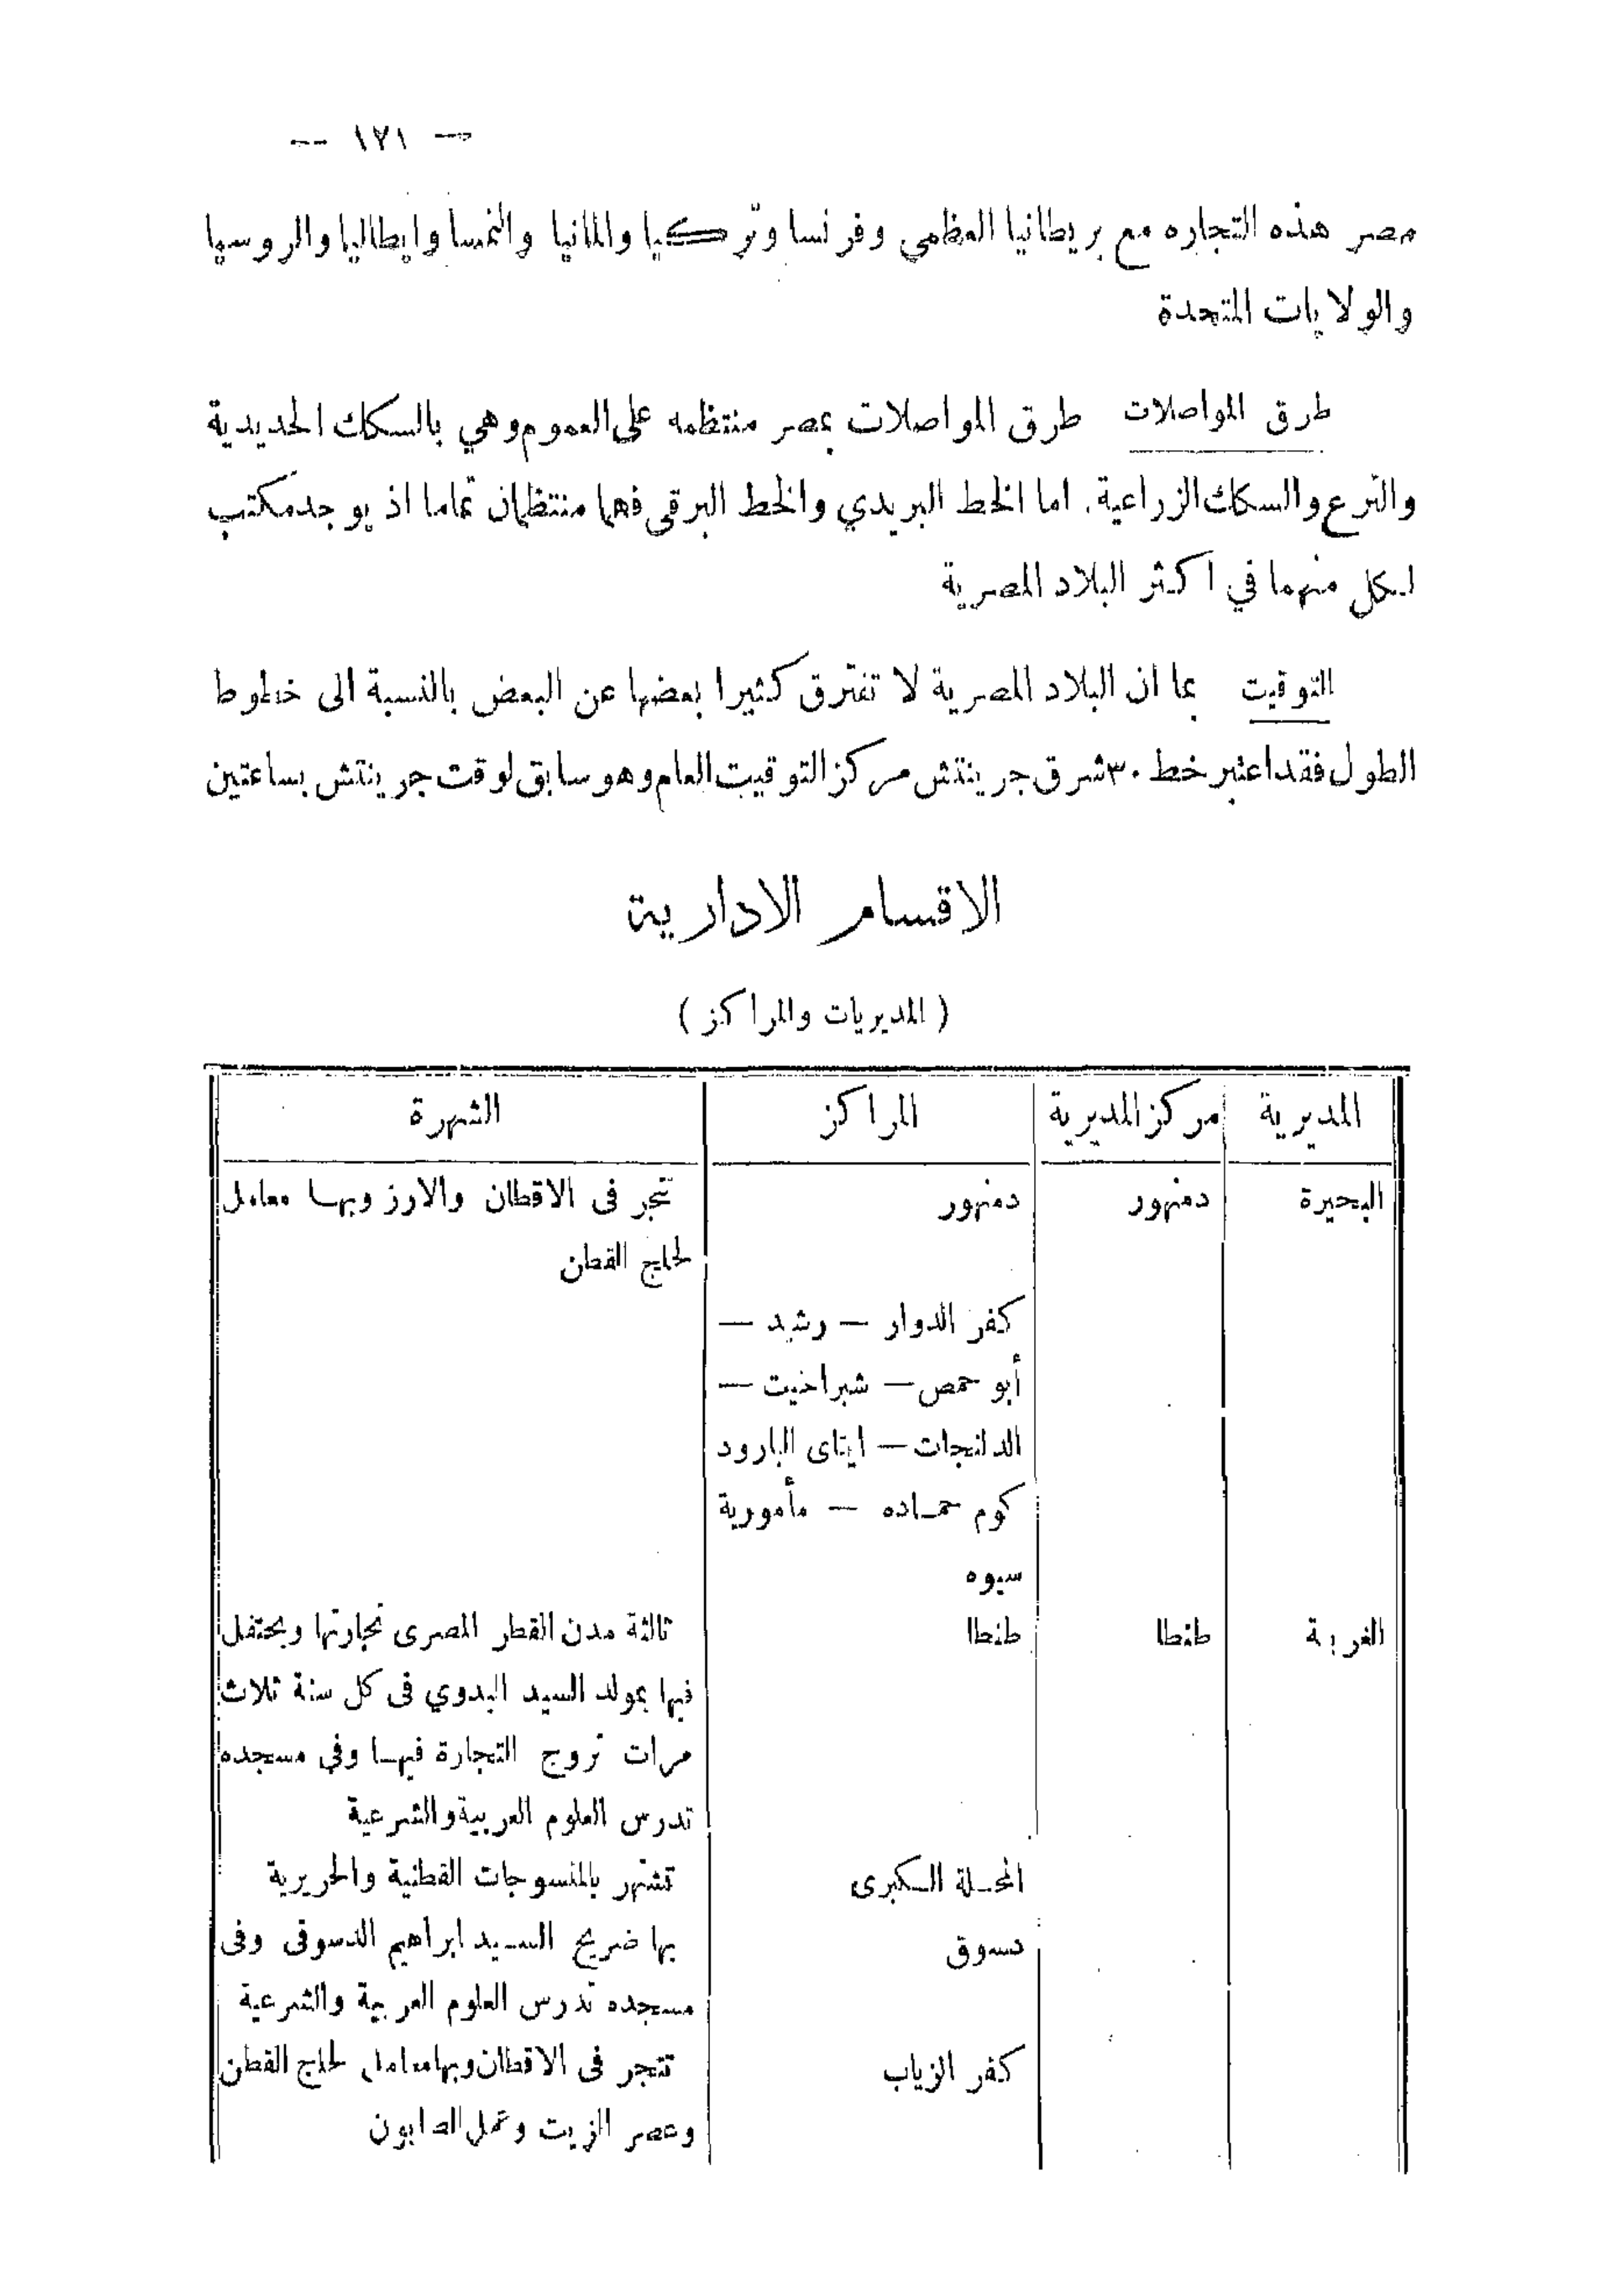 — ١٧١ —
مصر هذه التجاره مع بريطانيا العظمى وفرنسا وتركيا والمانيا والنمسا وايطاليا والروسيا
والولايات المتحدة
طرق المواصلات طرق المواصلات بمصر منتظمه على العموم وهي بالسكك الحديدية
والترع والسكك الزراعية. اما الخط البريدي والخط البرقى فهما منتظمان تماما اذ يوجد مكتب
لكل منهما في اكثر البلاد المصرية
التوقيت بما ان البلاد المصرية لا تفترق كثيرا بعضها عن البعض بالنسبة الى خطوط
الطول فقد اعتبر خط ٣٠ شرق جرينتش مركز التوقيت العام وهو سابق لوقت جرينتش بساعتين
الاقسام الادارية
( المديريات والمراكز )
المديرية مركز المديرية المراكز الشهرة
البحيرة دمنهور دمنهور تتجر فى الاقطان والارز وبها معامل
لحلج القطن
كفر الدوار — رشيد —
أبو حمص — شبراخيت —
الدلنجات — ايتاى البارود
كوم حماده — مأمورية
سيوه
الغربية طنطا طنطا ثالثة مدن القطر المصرى تجارتها ويحتفل
فيها بمولد السيد البدوي فى كل سنة ثلاث
مرات تروج التجارة فيها وفي مسجده
تدرس العلوم العربية والشرعية
المحلة الكبرى تشتهر بالمنسوجات القطنية والحريرية
دسوق بها ضريح السيد ابراهيم الدسوقى وفى
مسجده تدرس العلوم العربية والشرعية
كفر الزيات تتجر فى الاقطان وبها معامل لحلج القطن
وعصر الزيت وعمل الصابون